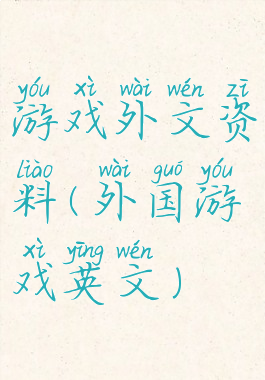 yóu xì wài wén zī
游戏外文资
liào wài guó yóu
料(外国游
xì yīng wén
戏英文)